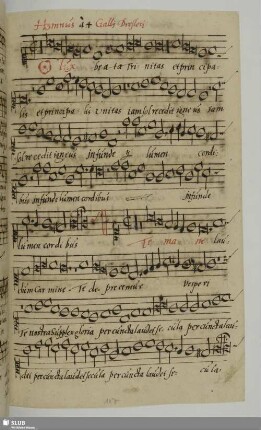 Hymnus à 4 Galli Dresleri
lux bea ta tri nitas et prin cipa
lis et principa lis Vnitas iam sol recedit igneus iam
sol recedit igneus infunde lumen cordi
bus infunde lumen cordibus infunde
lumen cordi bus Te ma ne lau
dum Car mine Te de precemur Vespe ri
Te nostra supplex gloria per cuncta laudet secula per cuncta lau
det per cuncta laudet secula per cuncta laudet se cula
SLUB